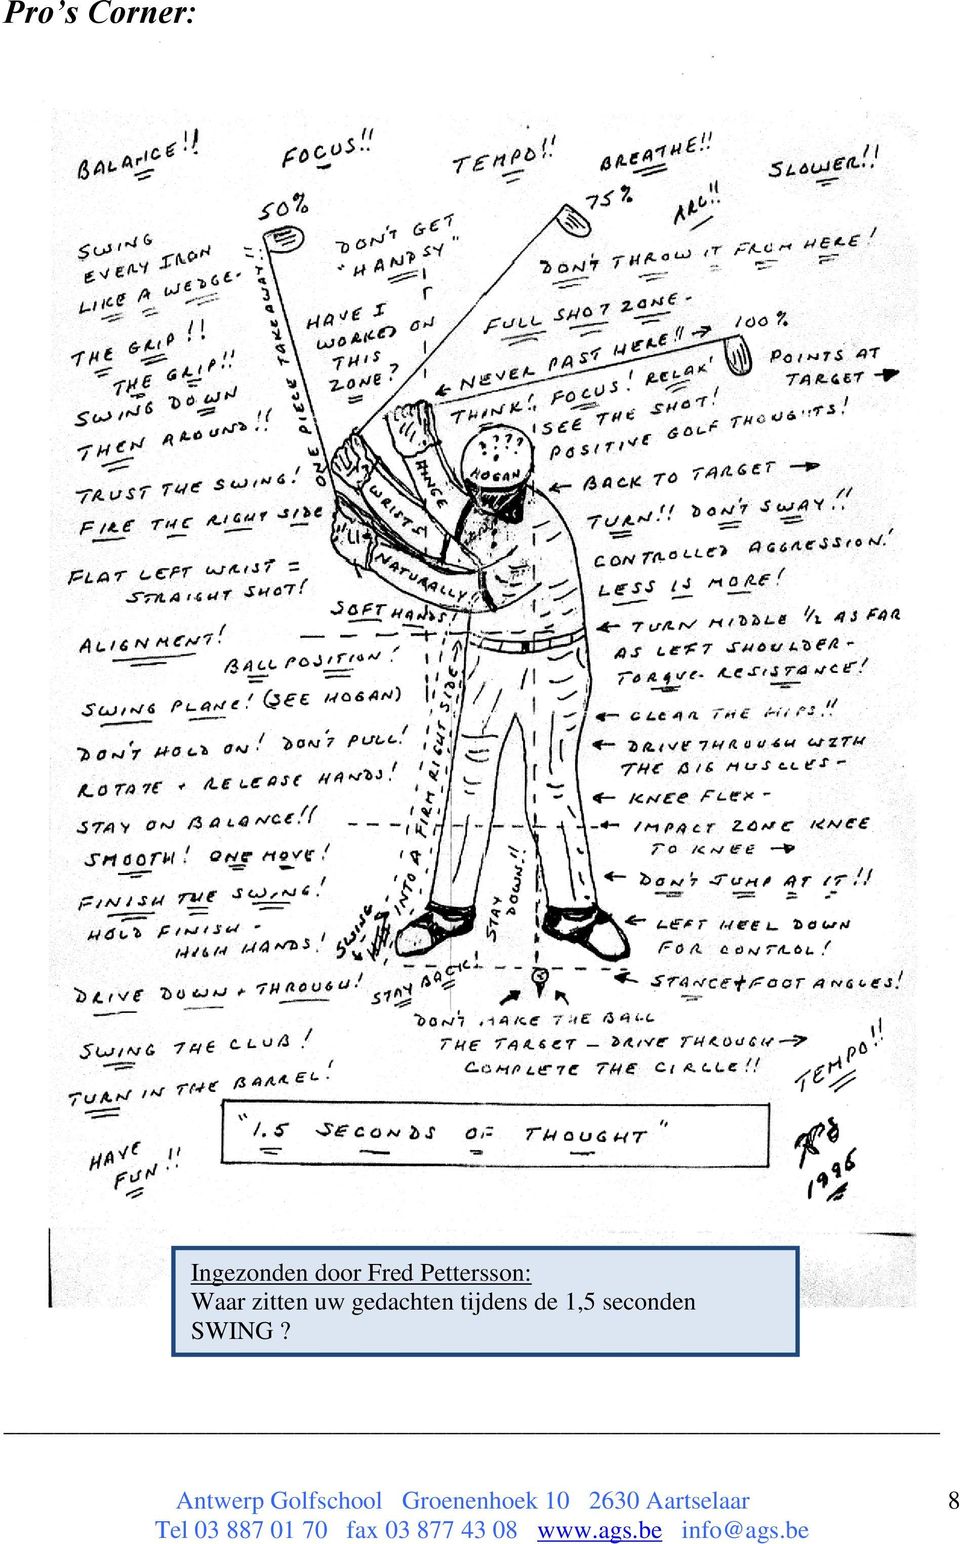 Pro’s Corner:
BALANCE!! FOCUS!! TEMPO!! BREATHE!! SLOWER!!
50% 75% ARC!!
SWING
EVERY IRON
LIKE A WEDGE-
ONE PIECE TAKEAWAY!!
DON'T GET
"HANDSY"
DON'T THROW IT FROM HERE!
THE GRIP!!
THE GRIP!!
HAVE I
WORKED ON
THIS
ZONE?
FULL SHOT ZONE-
100%
← NEVER PAST HERE!! →
POINTS AT
TARGET →
SWING DOWN
THEN AROUND!!
THINK! FOCUS! RELAX!
SEE THE SHOT!
POSITIVE GOLF THOUGHTS!
????
HOGAN
TRUST THE SWING!
FIRE THE RIGHT SIDE
HINGE
WRISTS
NATURALLY!
← BACK TO TARGET →
TURN!! DON'T SWAY!!
FLAT LEFT WRIST =
STRAIGHT SHOT!
CONTROLLED AGGRESSION!
LESS IS MORE!
SOFT HANDS!
← TURN MIDDLE 1/2 AS FAR
AS LEFT SHOULDER-
TORQUE- RESISTANCE!
ALIGNMENT!
BALL POSITION!
SWING PLANE! (SEE HOGAN)
← CLEAR THE HIPS!!
DON'T HOLD ON! DON'T PULL!
← DRIVE THROUGH WITH
THE BIG MUSCLES-
ROTATE + RELEASE HANDS!
← KNEE FLEX-
STAY ON BALANCE!!
← IMPACT ZONE KNEE
TO KNEE →
SMOOTH! ONE MOVE!
← DON'T JUMP AT IT!!
FINISH THE SWING!
SWING INTO A FIRM RIGHT SIDE →
STAY DOWN!!
HOLD FINISH -
HIGH HANDS!
← LEFT HEEL DOWN
FOR CONTROL!
DRIVE DOWN + THROUGH!
STAY BACK!
← STANCE + FOOT ANGLES!
SWING THE CLUB!
DON'T MAKE THE BALL
THE TARGET — DRIVE THROUGH →
COMPLETE THE CIRCLE!!
TEMPO!!
TURN IN THE BARREL!
"1.5 SECONDS OF THOUGHT"
HAVE
FUN!!
1996
Ingezonden door Fred Pettersson:
Waar zitten uw gedachten tijdens de 1,5 seconden
SWING ?
Antwerp Golfschool Groenenhoek 10 2630 Aartselaar 8
Tel 03 887 01 70 fax 03 877 43 08 www.ags.be info@ags.be